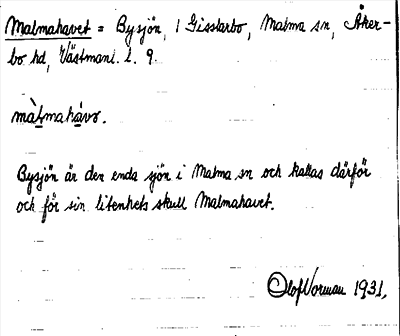 Malmahavet = Bysjön, i Gisslarbo, Malma sn, Åker-
bo hd, Västmanl. l. 9.
màlmahávo.
Bysjön är den enda sjön i Malma sn och kallas därför
och för sin litenhets skull Malmahavet.
Olof Norman 1931,